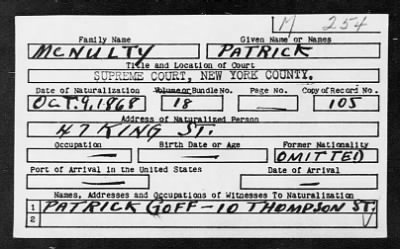 M 254
Family Name Given Name or Names
McNULTY PATRICK
Title and Location of Court
SUPREME COURT, NEW YORK COUNTY.
Date of Naturalization Volume or Bundle No. Page No. Copy of Record No.
OCT. 9, 1868 18 — 105
Address of Naturalized Person
47 KING ST.
Occupation Birth Date or Age Former Nationality
— — OMITTED
Port of Arrival in the United States Date of Arrival
— —
Names, Addresses and Occupations of Witnesses To Naturalization
1 PATRICK GOFF - 10 THOMPSON ST.
2